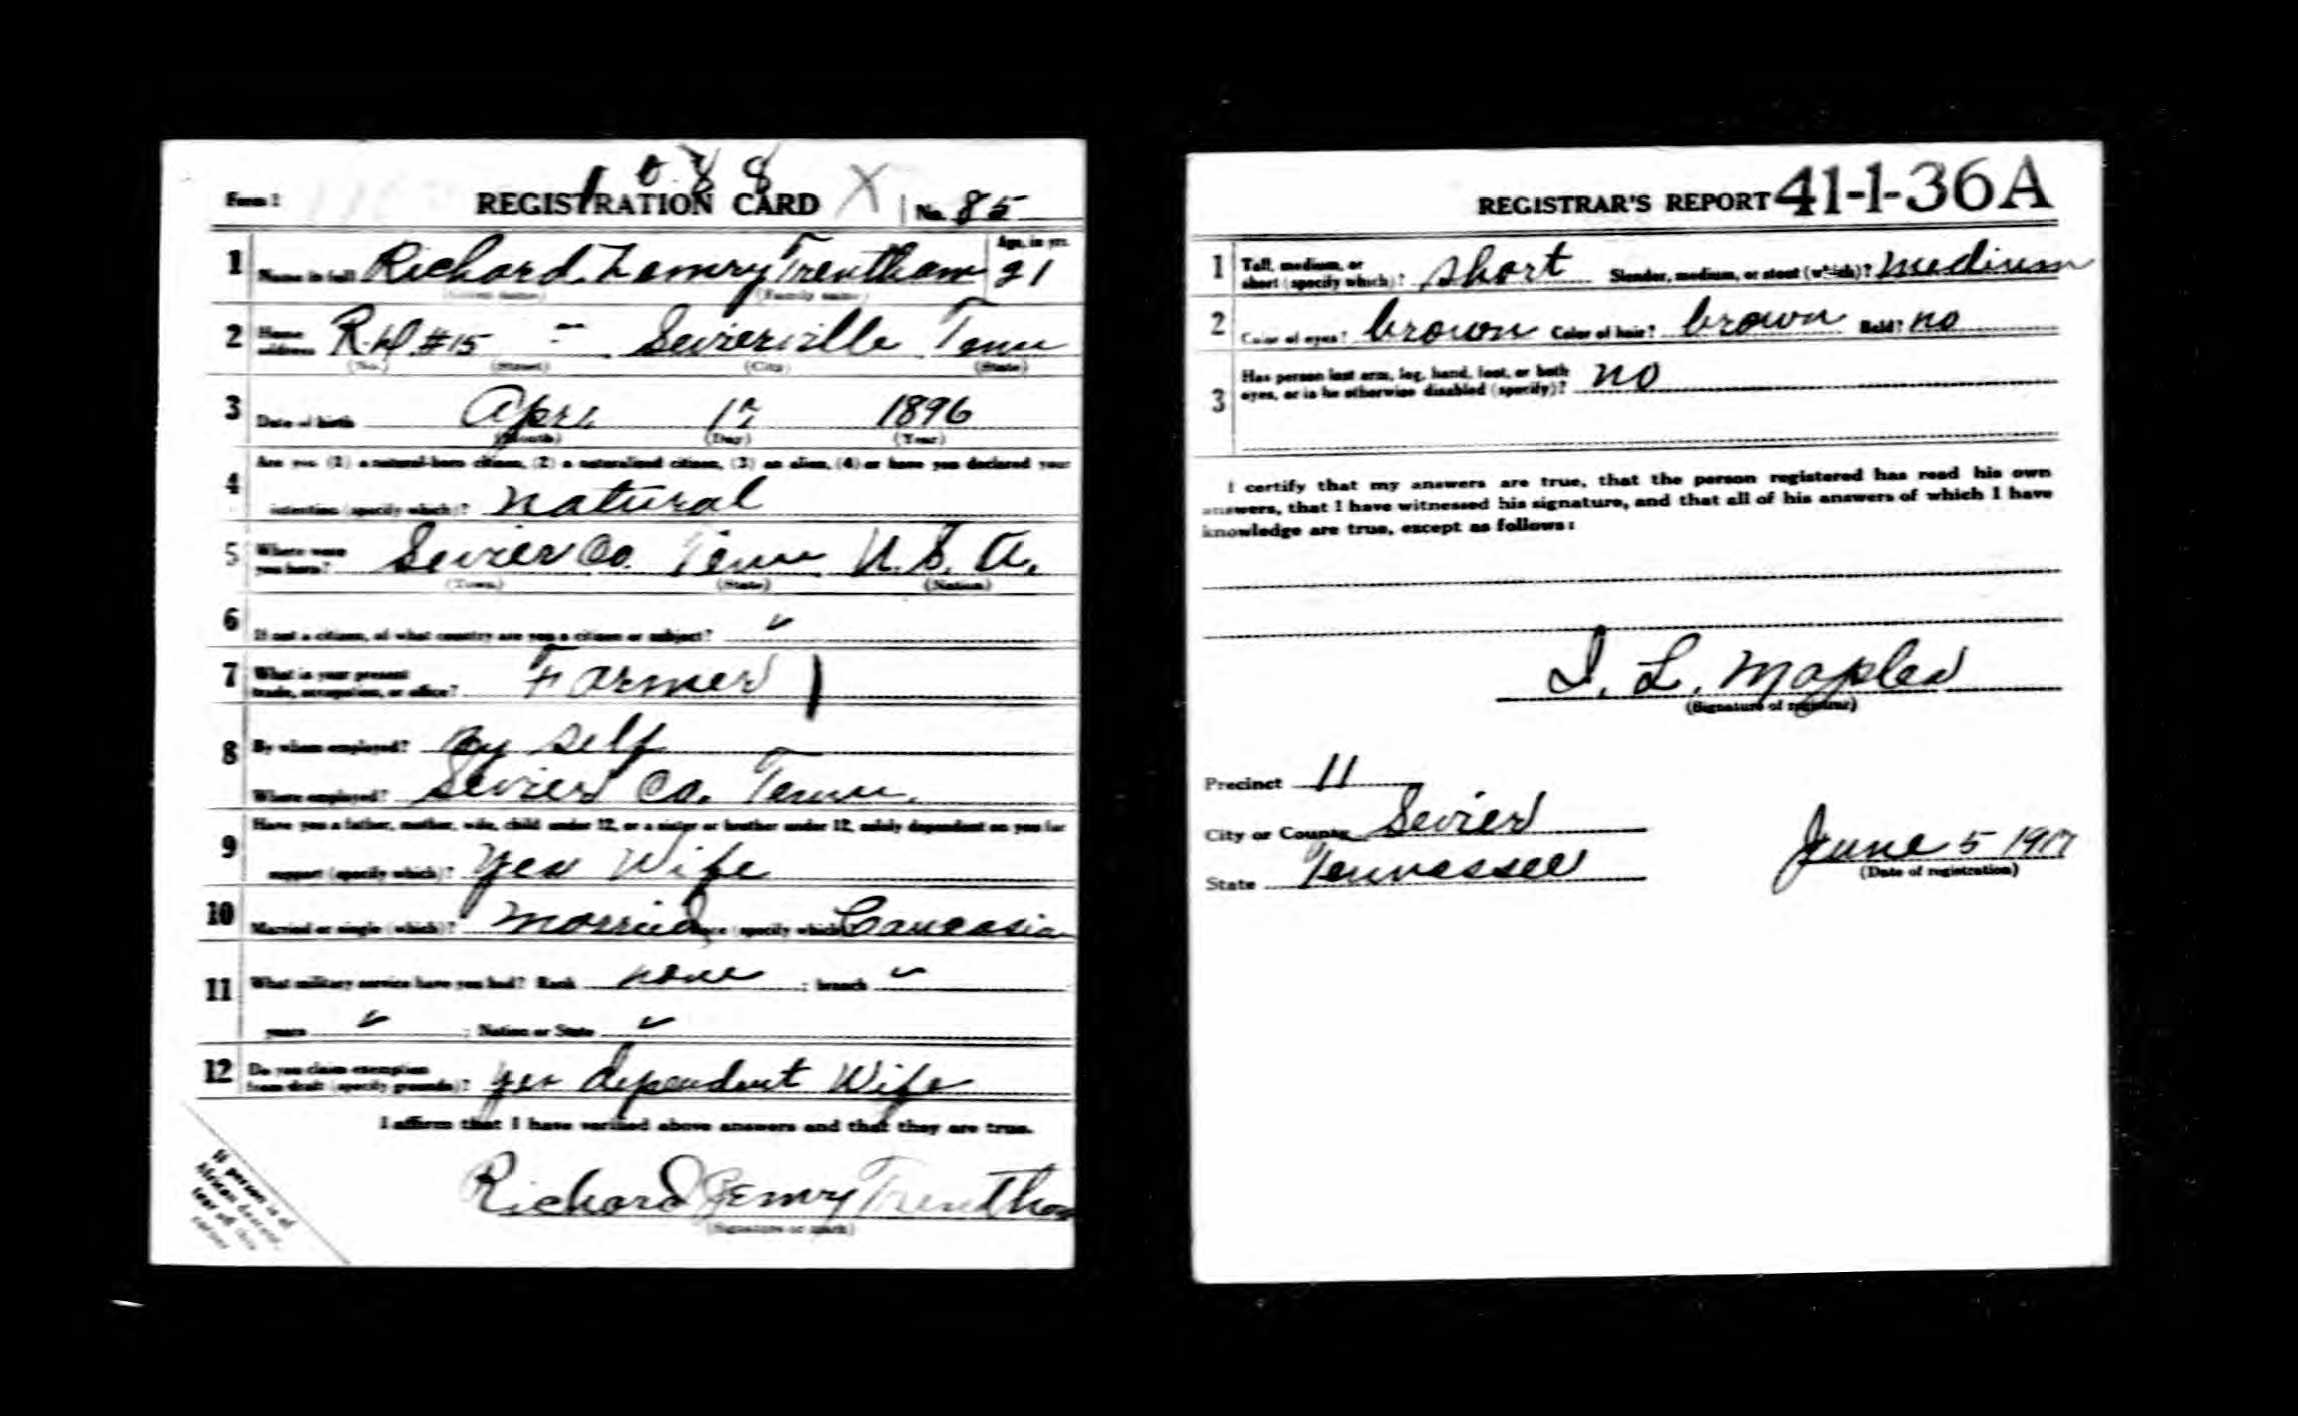 1088
Form 1 REGISTRATION CARD X No. 85
1 Name in full Richard Trentham Age, in yrs. 21
(Given name) (Family name)
2 Home address R.f.d #15 — Sevierville Tenn
(No.) (Street) (City) (State)
3 Date of birth 1896
(Month) (Day) (Year)
4 Are you (1) a natural-born citizen, (2) a naturalized citizen, (3) an alien, (4) or have you declared your
intention (specify which)? natural
5 Where were you born? Sevier Co. Tenn U.S.A.
(Town) (State) (Nation)
6 If not a citizen, of what country are you a citizen or subject?
7 What is your present trade, occupation, or office? Farmer
8 By whom employed? By self
Where employed? Sevier Co. Tenn.
9 Have you a father, mother, wife, child under 12, or a sister or brother under 12, solely dependent on you for
support (specify which)? Yes Wife
10 Married or single (which)? Married Race (specify which) Caucasian
11 What military service have you had? Rank none ; branch
years ; Nation or State
12 Do you claim exemption from draft (specify grounds)? yes dependent Wife
I affirm that I have verified above answers and that they are true.
Richard Trentham
(Signature or mark)
If person is of
African descent,
tear off this
corner
REGISTRAR'S REPORT 41-1-36A
1 Tall, medium, or short (specify which)? short Slender, medium, or stout (which)? medium
2 Color of eyes? brown Color of hair? brown Bald? no
3 Has person lost arm, leg, hand, foot, or both
eyes, or is he otherwise disabled (specify)? no
I certify that my answers are true, that the person registered has read his own
answers, that I have witnessed his signature, and that all of his answers of which I have
knowledge are true, except as follows:
I. L. Maples
(Signature of registrar)
Precinct 11
City or County Sevier
State Tennessee
June 5 1917
(Date of registration)